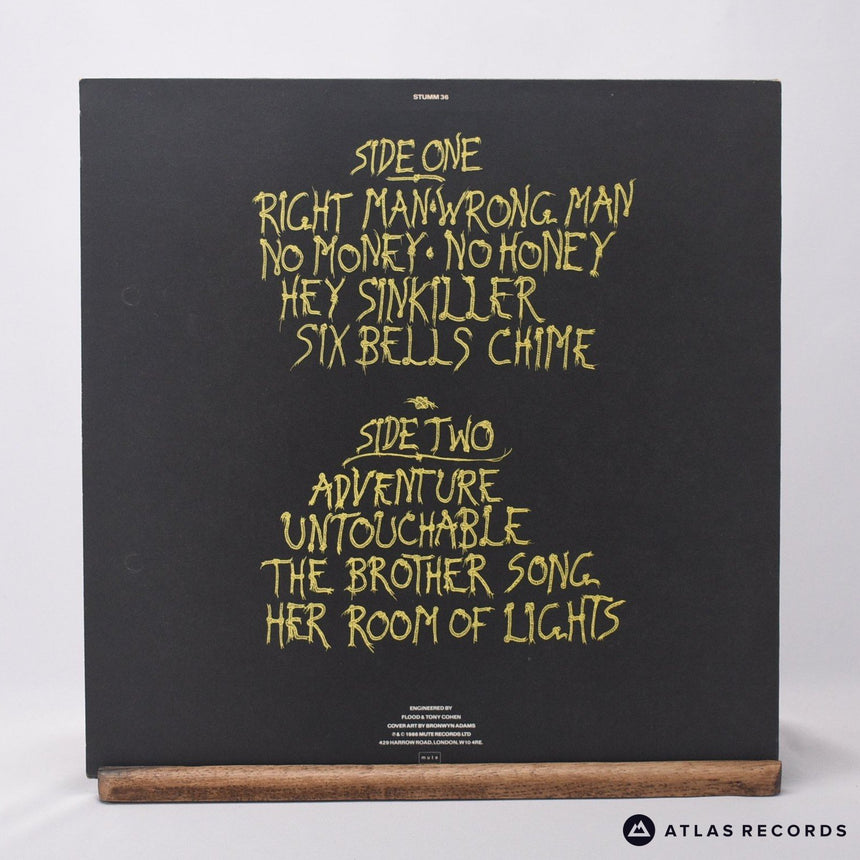 STUMM 36
SIDE ONE
RIGHT MAN·WRONG MAN
NO MONEY·NO HONEY
HEY SINKILLER
SIX BELLS CHIME
SIDE TWO
ADVENTURE
UNTOUCHABLE
THE BROTHER SONG
HER ROOM OF LIGHTS
ENGINEERED BY
FLOOD & TONY COHEN
COVER ART BY BRONWYN ADAMS
℗ & © 1986 MUTE RECORDS LTD
429 HARROW ROAD, LONDON, W10 4RE.
mute
ATLAS RECORDS